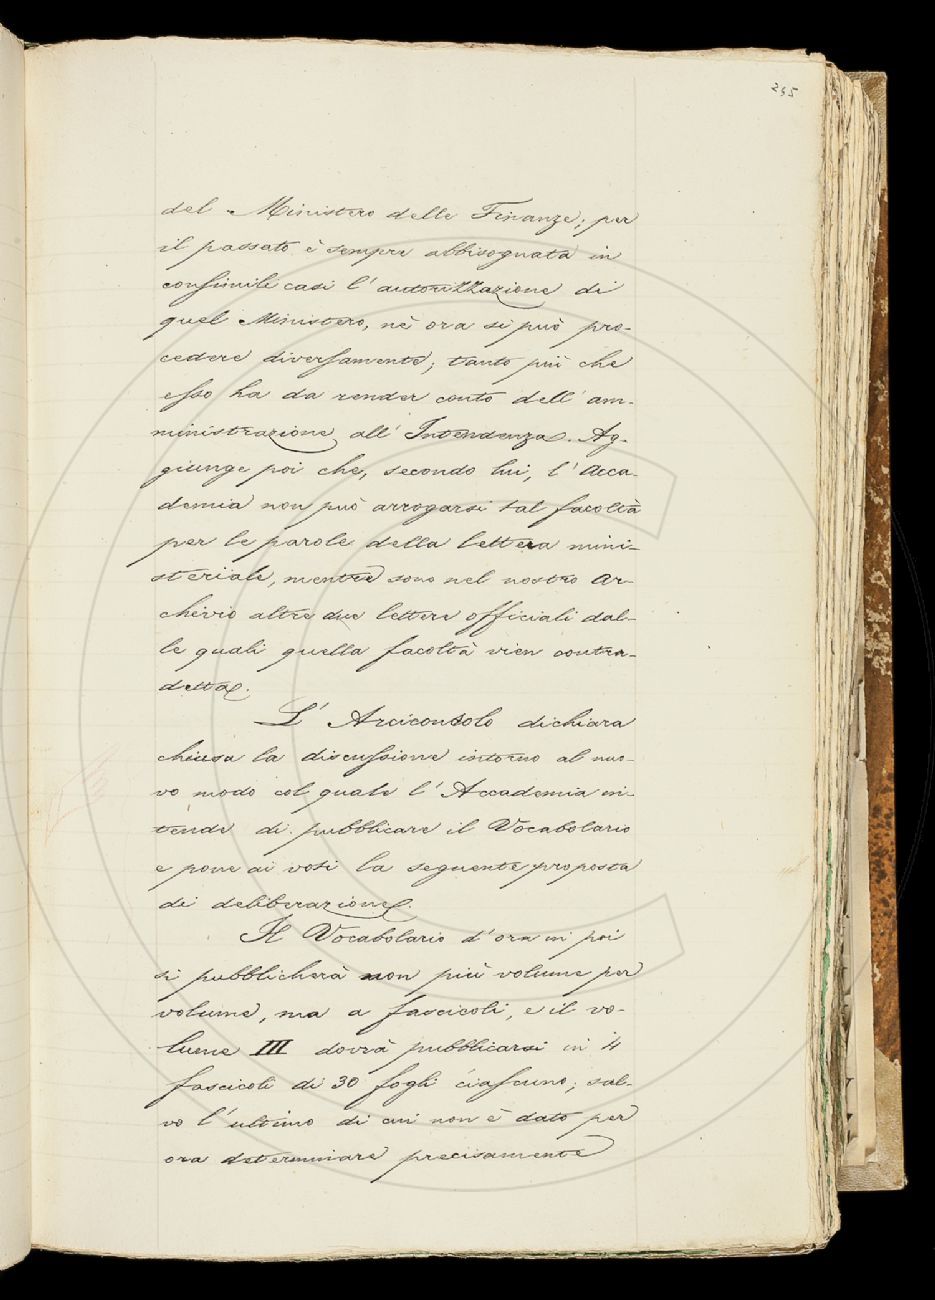 245
del Ministero delle Finanze; per
il passato è sempre abbisognata in
consimile casi l'autorizzazione di
quel Ministero, nè ora si può pro-
cedere diversamente; tanto più che
esso ha da render conto dell'am-
ministrazione all'Intendenza. Ag-
giunge poi che, secondo lui, l'Acca-
demia non può arrogarsi tal facoltà
per le parole della lettera mini-
steriale, mentre sono nel nostro Ar-
chivio altre due lettere officiali dal-
le quali quella facoltà vien contra-
detta.
L'Arciconsolo dichiara
chiusa la discussione intorno al nuo-
vo modo col quale l'Accademia in-
tende di pubblicare il Vocabolario
e pone ai voti la seguente proposta
di deliberazione.
Il Vocabolario d'ora in poi
si pubblicherà non più volume per
volume, ma a fascicoli, e il vo-
lume III dovrà pubblicarsi in 4
fascicoli di 30 fogli ciascuno; sal-
vo l'ultimo di cui non è dato per
ora determinare precisamente